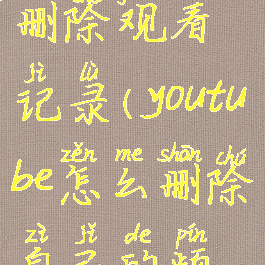 删除观看
jì lù
记录(youtu
zěn me shān chú
be怎么删除
zì jǐ de pín
自己的频